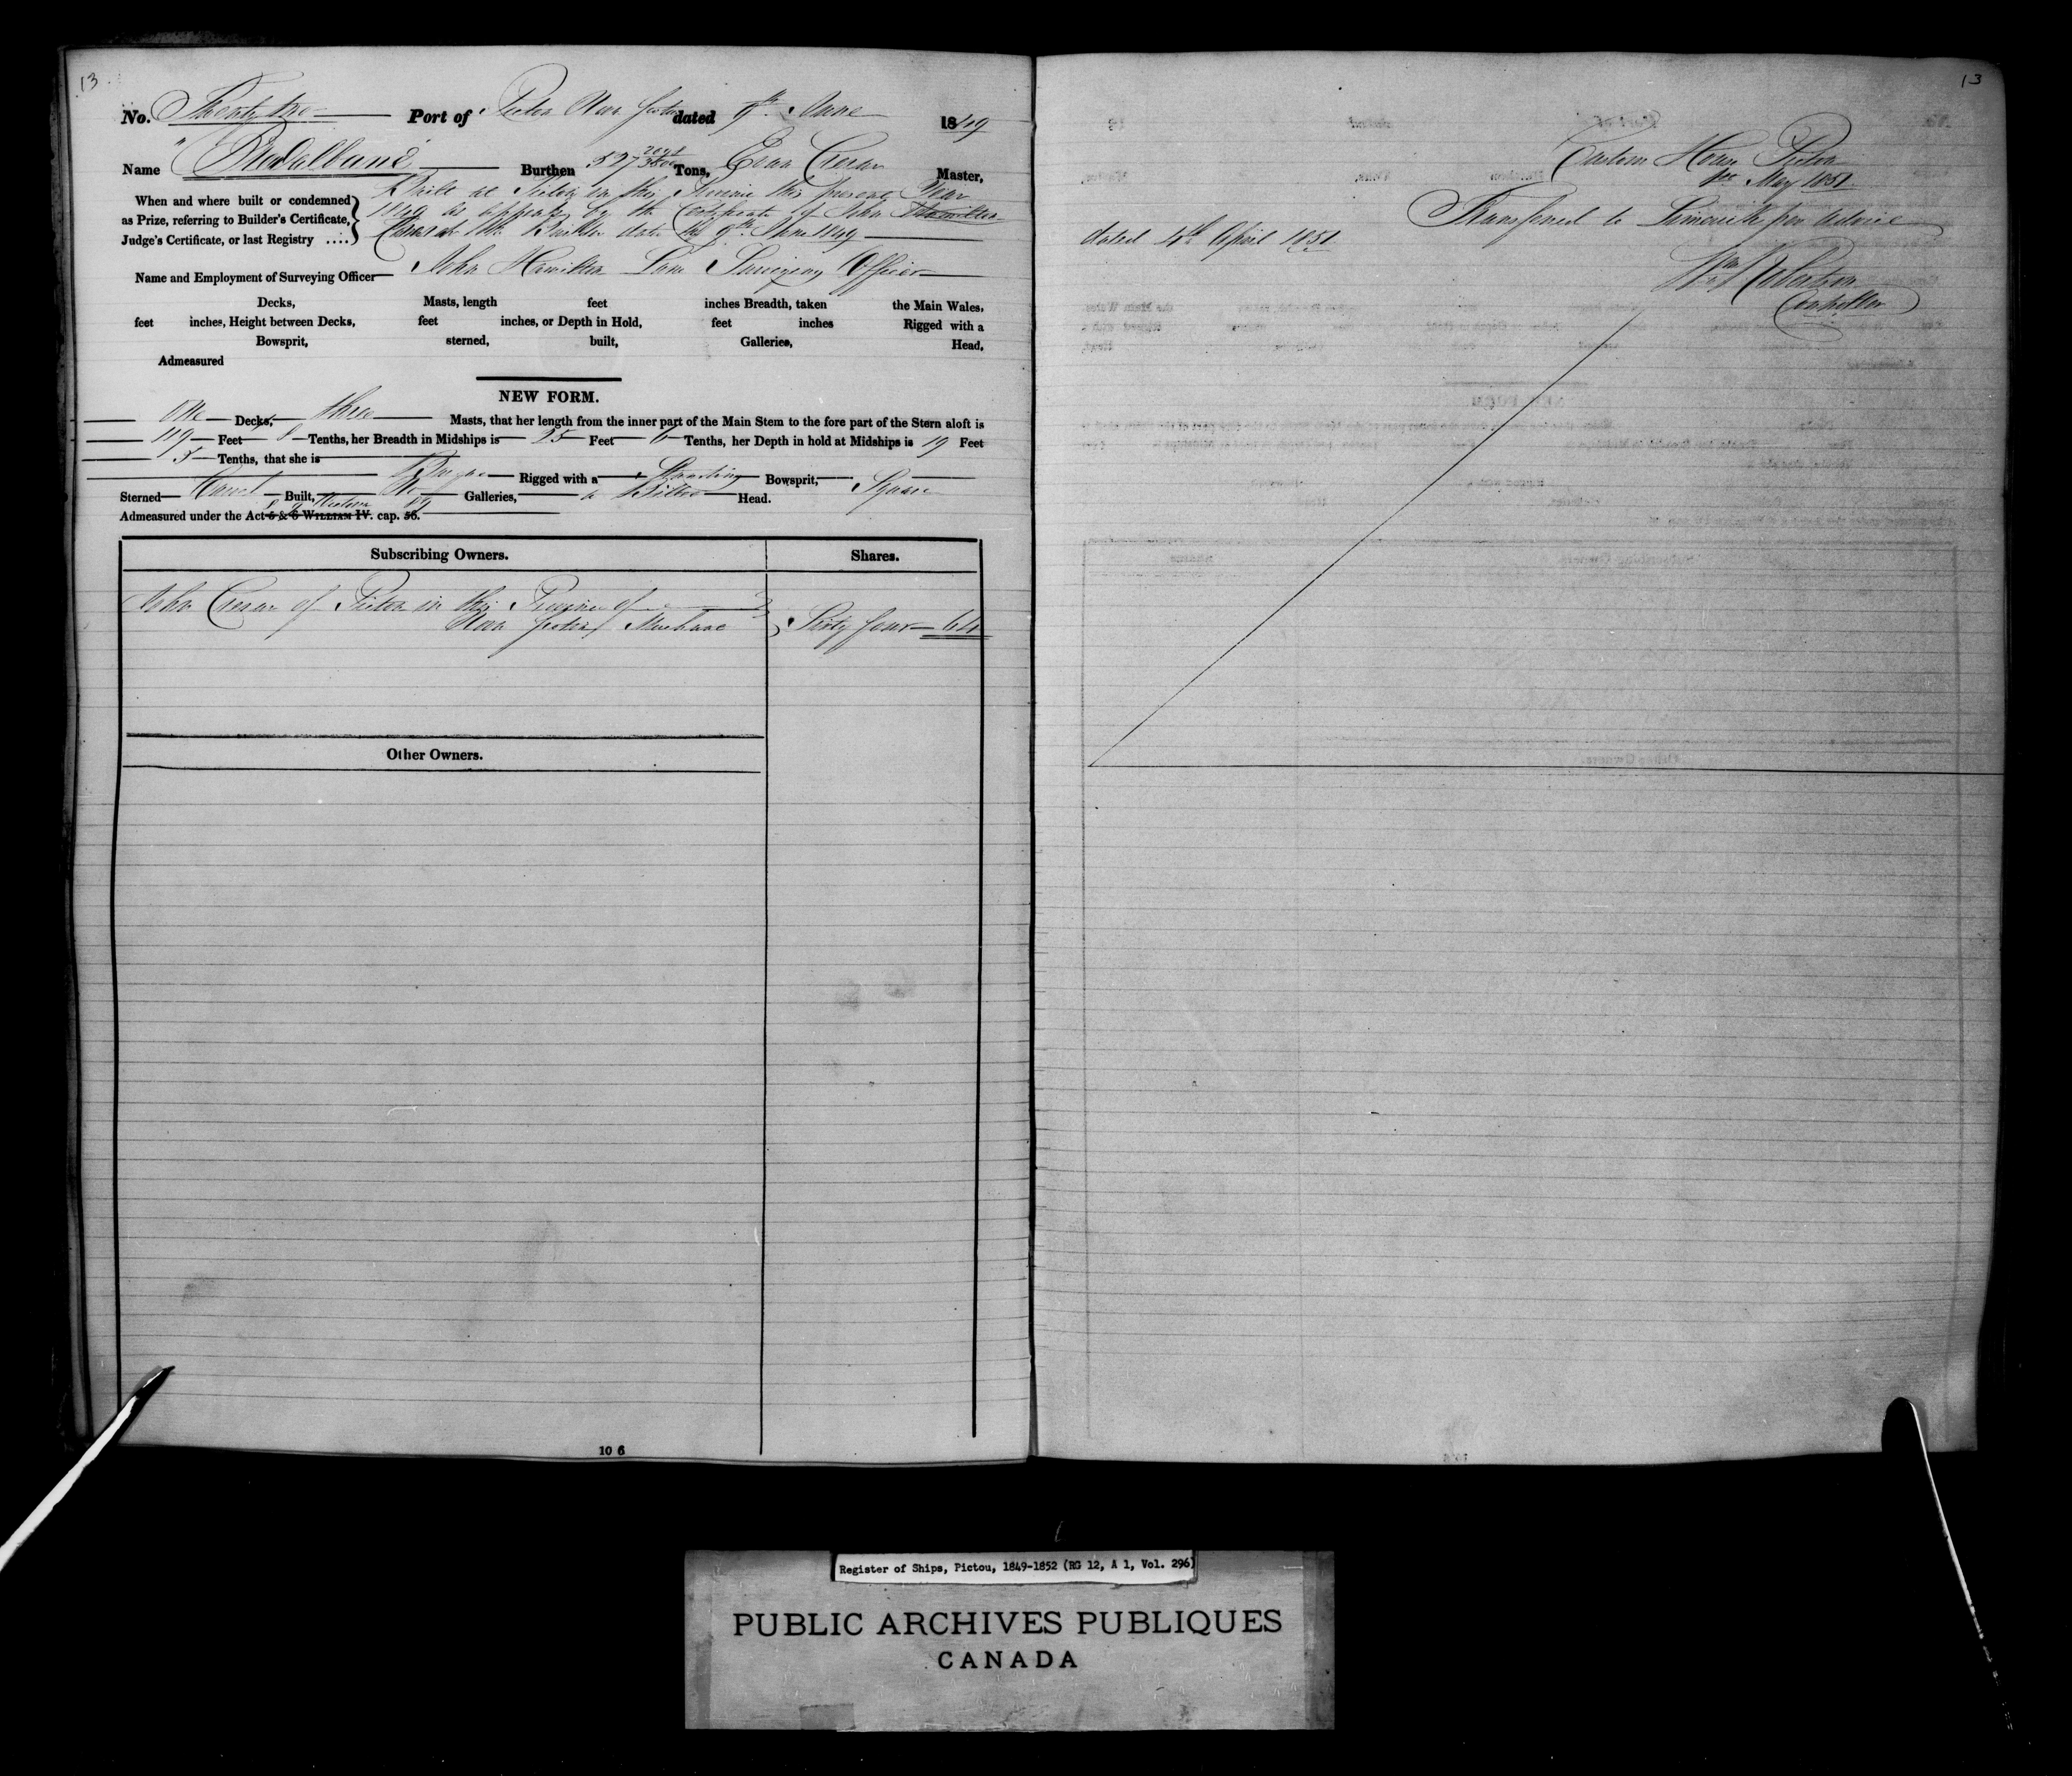 13
13
No. Twenty two Port of Pictou Nova Scotia dated 9th June 1849
Name "Bredalbane" Burthen 527 Tons, Master,
When and where built or condemned
as Prize, referring to Builder's Certificate,
Judge's Certificate, or last Registry ....
Built at Pictou in this Province this present Year
1849 as appears by the Certificate of John Hamilton
the Builder dated the 9th June 1849
Name and Employment of Surveying Officer John Hamilton Lane Surveying Officer
Decks, Masts, length feet inches Breadth, taken the Main Wales,
feet inches, Height between Decks, feet inches, or Depth in Hold, feet inches Rigged with a
Bowsprit, sterned, built, Galleries, Head,
Admeasured
NEW FORM.
One Decks, three Masts, that her length from the inner part of the Main Stem to the fore part of the Stern aloft is
119 Feet 8 Tenths, her Breadth in Midships is 25 Feet 6 Tenths, her Depth in hold at Midships is 19 Feet
5 Tenths, that she is
Barque Rigged with a Standing Bowsprit, Square
Sterned Carvel Built, No Galleries, a Billet Head.
Admeasured under the Act 5 & 6 WILLIAM IV. cap. 56.
8 9 Victoria 89
Subscribing Owners. Shares.
John Crerar of Pictou in the Province of
Nova Scotia Merchant Sixty four 64
Other Owners.
10 6
Custom House Pictou
May 1851
Transferred to Limerick per advice
dated 4th April 1851
Wm Robertson
Controller
Register of Ships, Pictou, 1849-1852 (RG 12, A 1, Vol. 296)
PUBLIC ARCHIVES PUBLIQUES
CANADA